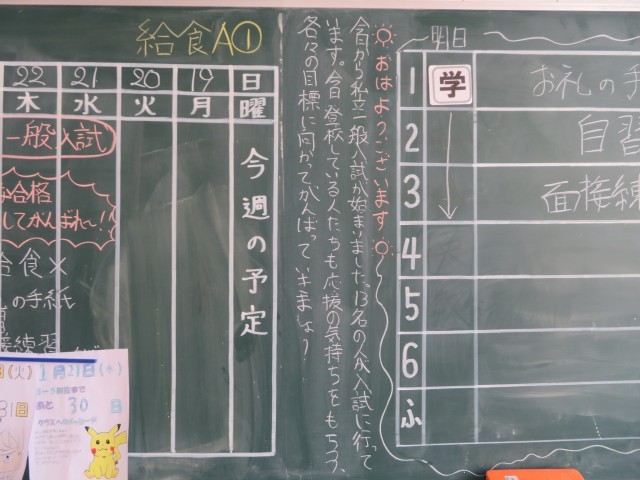 明日
1 学 お礼の手
2 自習
3 面接練
4
5
6
ふ
おはようございます
今日から私立一般入試が始まりました。13名の人が入試に行って
います。今日、登校している人たちも応援の気持ちをもち、
各々の目標に向かってがんばっていきましょう
給食A①
22 21 20 19 日
木 水 火 月 曜
今週の予定
一般入試
合格
してがんばれ〜!!
食×
の手紙
接練習
(火)
31日
1月21日(水)
あと 30 日
クラスへのメッセージ